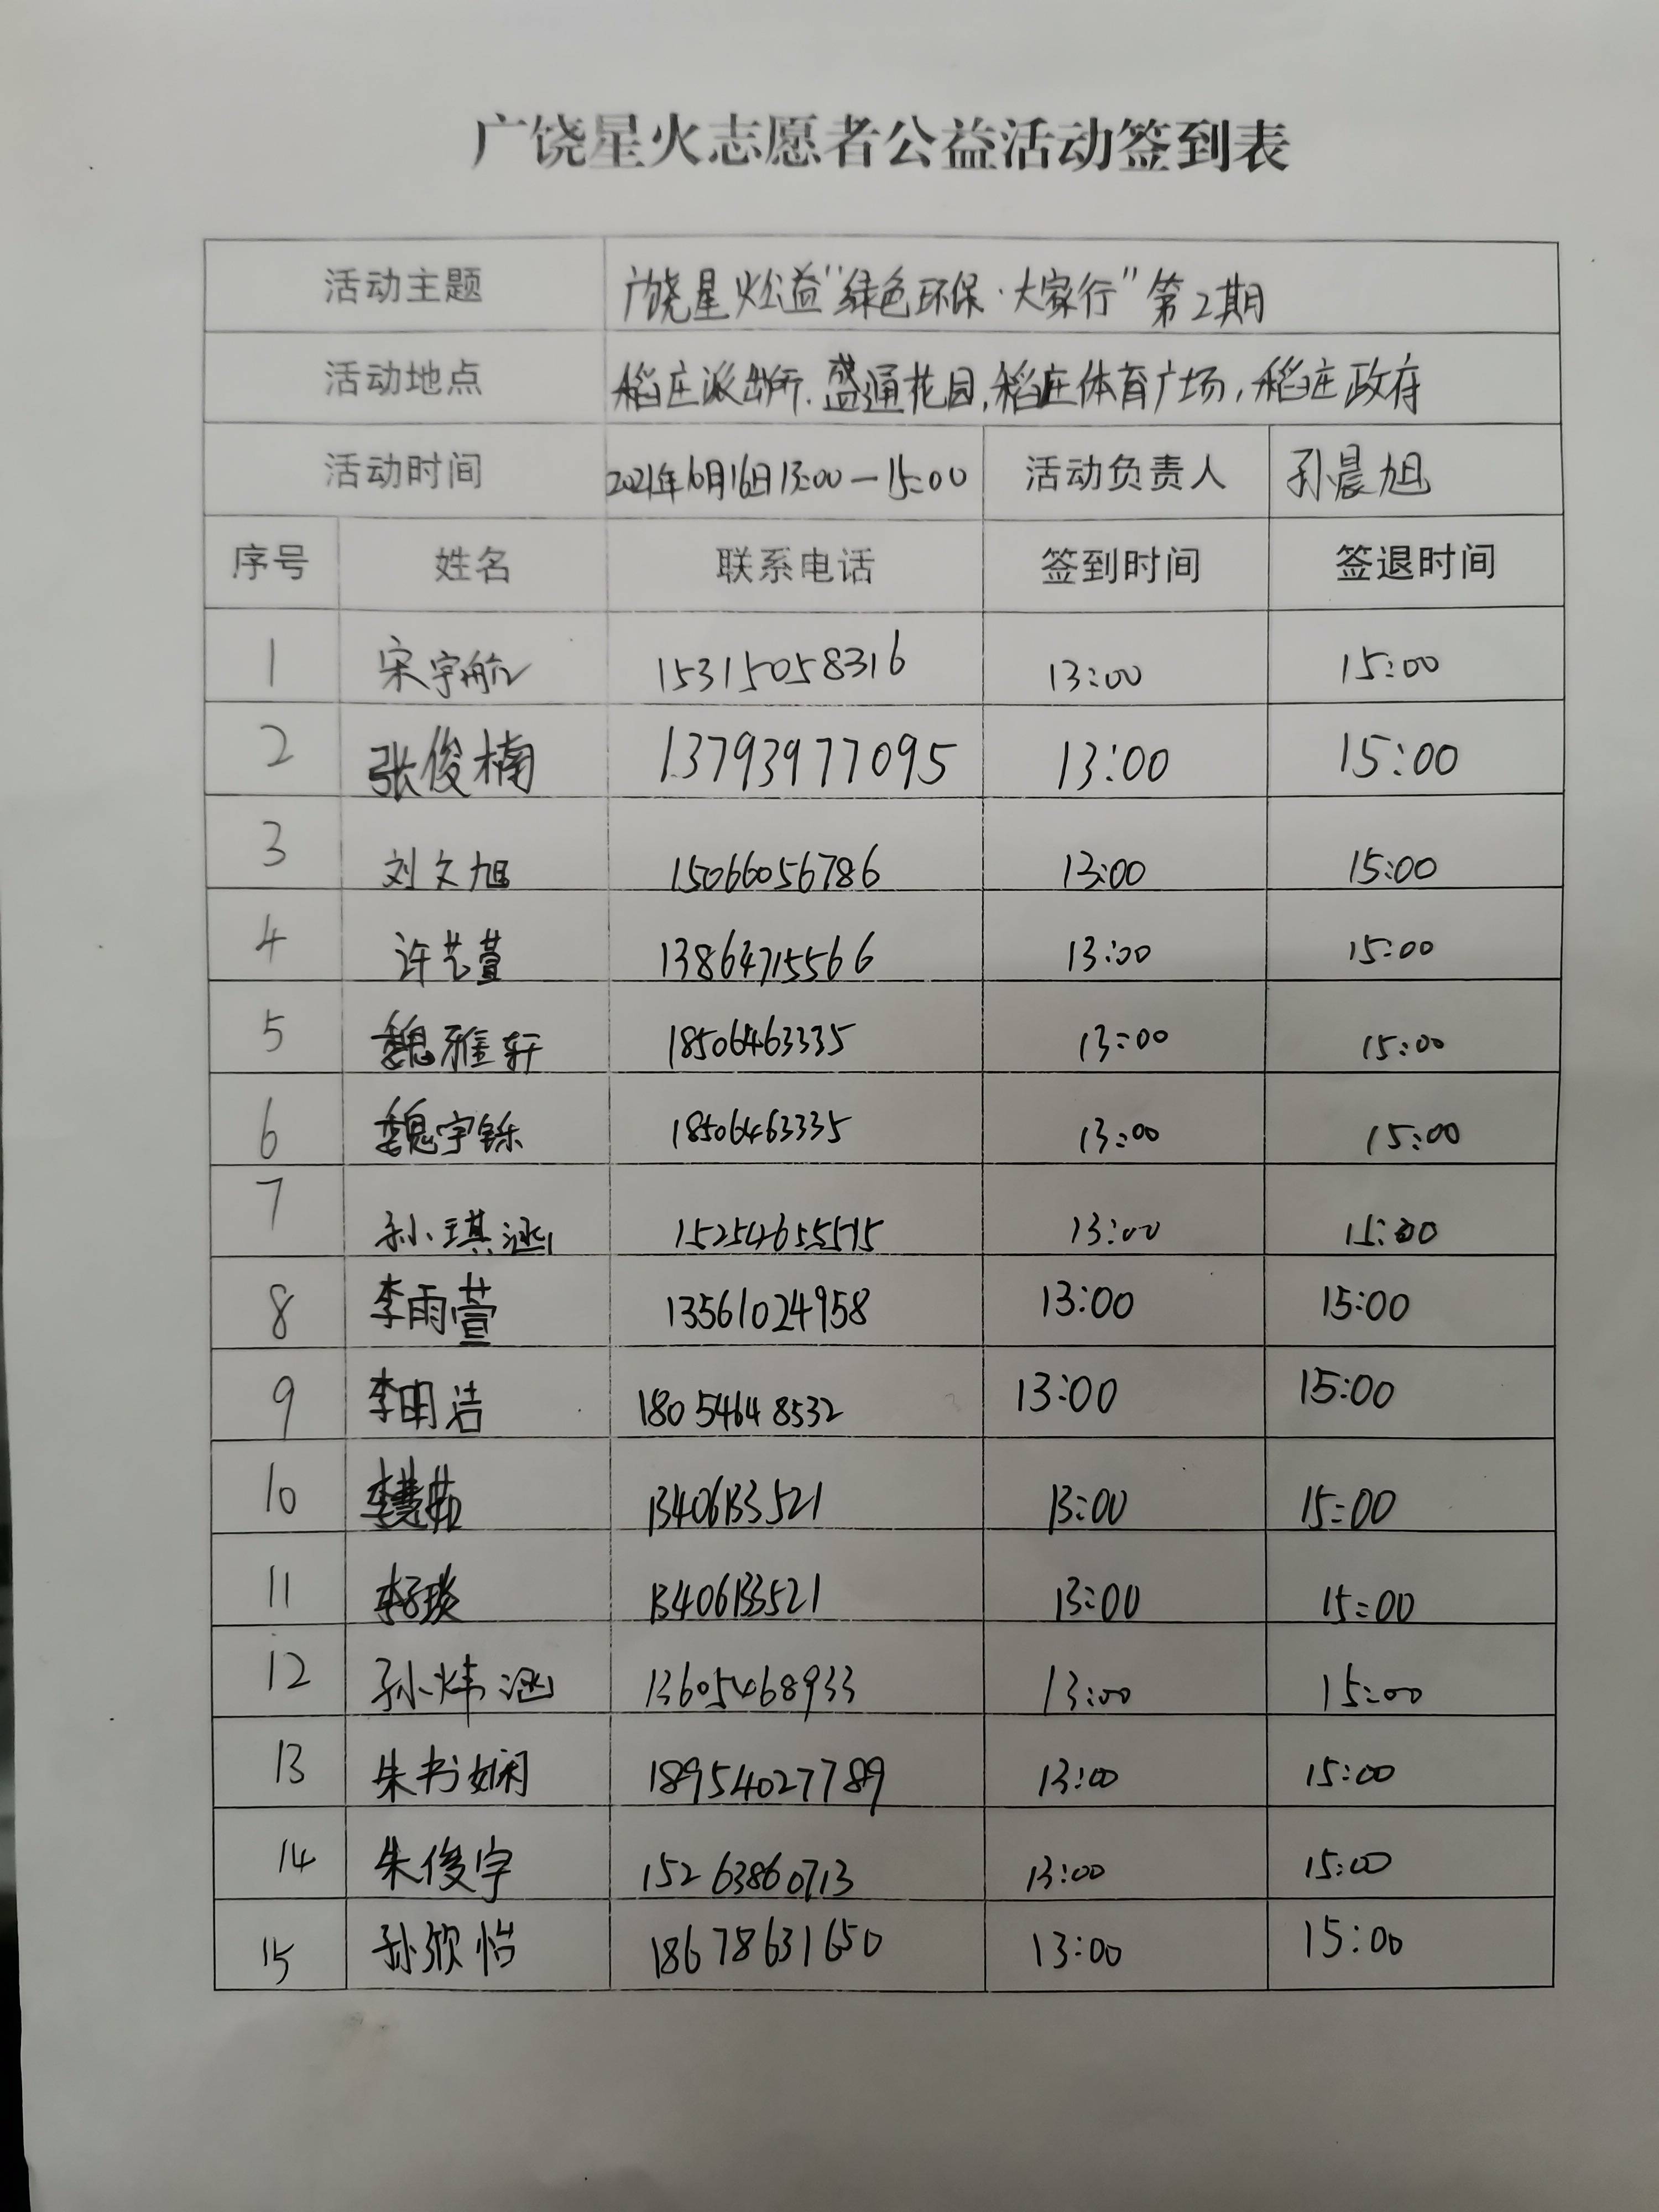 广饶星火志愿者公益活动签到表
活动主题 广饶星火公益“绿色环保·大家行”第2期
活动地点 稻庄派出所.盛通花园,稻庄体育广场,稻庄政府
活动时间 2021年10月16日13:00—15:00 活动负责人 孙晨旭
序号 姓名 联系电话 签到时间 签退时间
1 宋宇航 15315058316 13:00 15:00
2 张俊楠 13793977095 13:00 15:00
3 刘文旭 15066056786 13:00 15:00
4 许艺萱 13864715566 13:00 15:00
5 魏雅轩 18506463335 13:00 15:00
6 魏宇铄 18506463335 13:00 15:00
7 孙琪涵 15254655575 13:00 15:00
8 李雨萱 13561024958 13:00 15:00
9 李明洁 18054648532 13:00 15:00
10 李慧茹 13406133521 13:00 15:00
11 李子琰 13406133521 13:00 15:00
12 孙炜涵 13605468933 13:00 15:00
13 朱书娴 18954027789 13:00 15:00
14 朱俊宇 15263860713 13:00 15:00
15 孙欣怡 18678631650 13:00 15:00